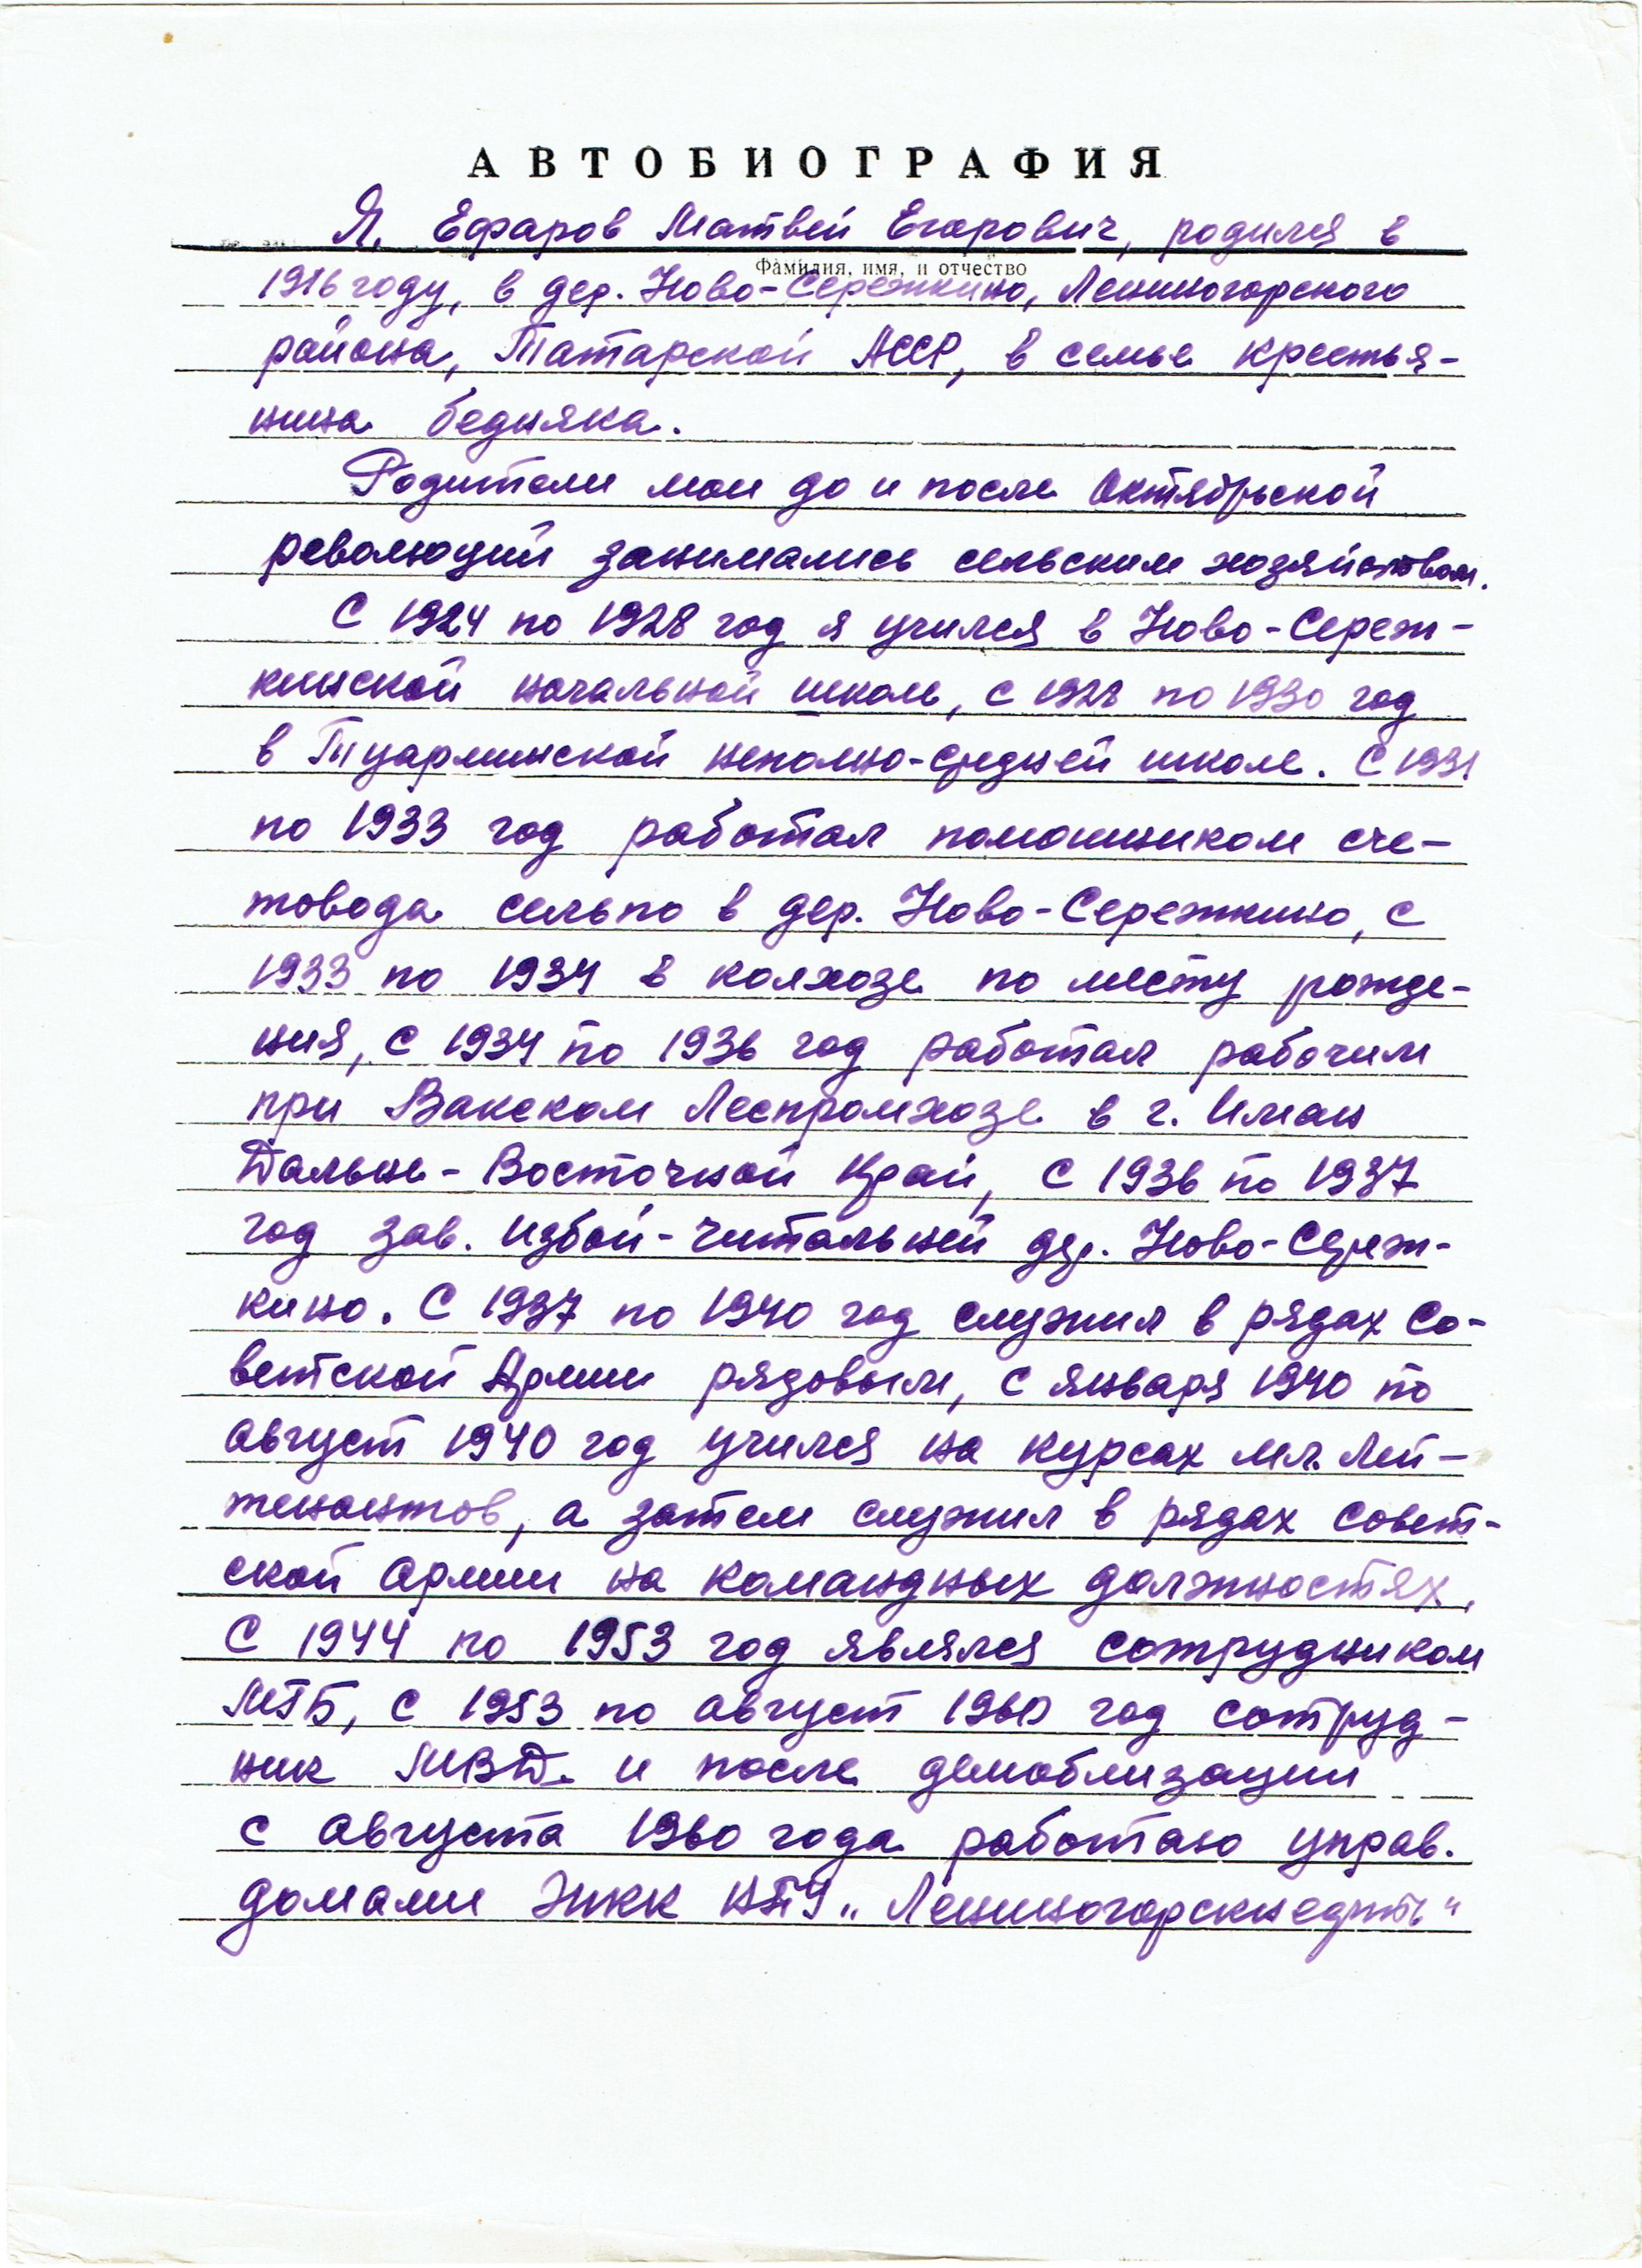 АВТОБИОГРАФИЯ
Я, Ефаров Матвей Егорович, родился в
Фамилия, имя, и отчество
1916 году, в дер. Ново-Сережкино, Лениногорского
района, Татарской АССР, в семье крестья-
нина бедняка.
Родители мои до и после Октябрьской
революций занимались сельским хозяйством.
С 1924 по 1928 год я учился в Ново-Сереж-
кинской начальной школе, с 1928 по 1930 год
в Туарминской неполно-средней школе. С 1931
по 1933 год работал помошником сче-
товода сельпо в дер. Ново-Сережкино, с
1933 по 1934 в колхозе по месту рожде-
ния, с 1934 по 1936 год работал рабочим
при Вакском Леспромхозе в г. Иман
Дальне-Восточной Край, С 1936 по 1937
год зав. избой-читальней дер. Ново-Сереж-
кино. С 1937 по 1940 год служил в рядах Со-
ветской Армии рядовым, с января 1940 по
август 1940 год учился на курсах мл. лей-
тенантов, а затем служил в рядах Совет-
ской Армии на командных должностях.
С 1944 по 1953 год являлся сотрудником
МГБ, с 1953 по август 1960 год сотруд-
ник МВД. и после демоблизации
с августа 1960 года работаю управ.
домами ЖКК НПУ „Лениногорскнефть"